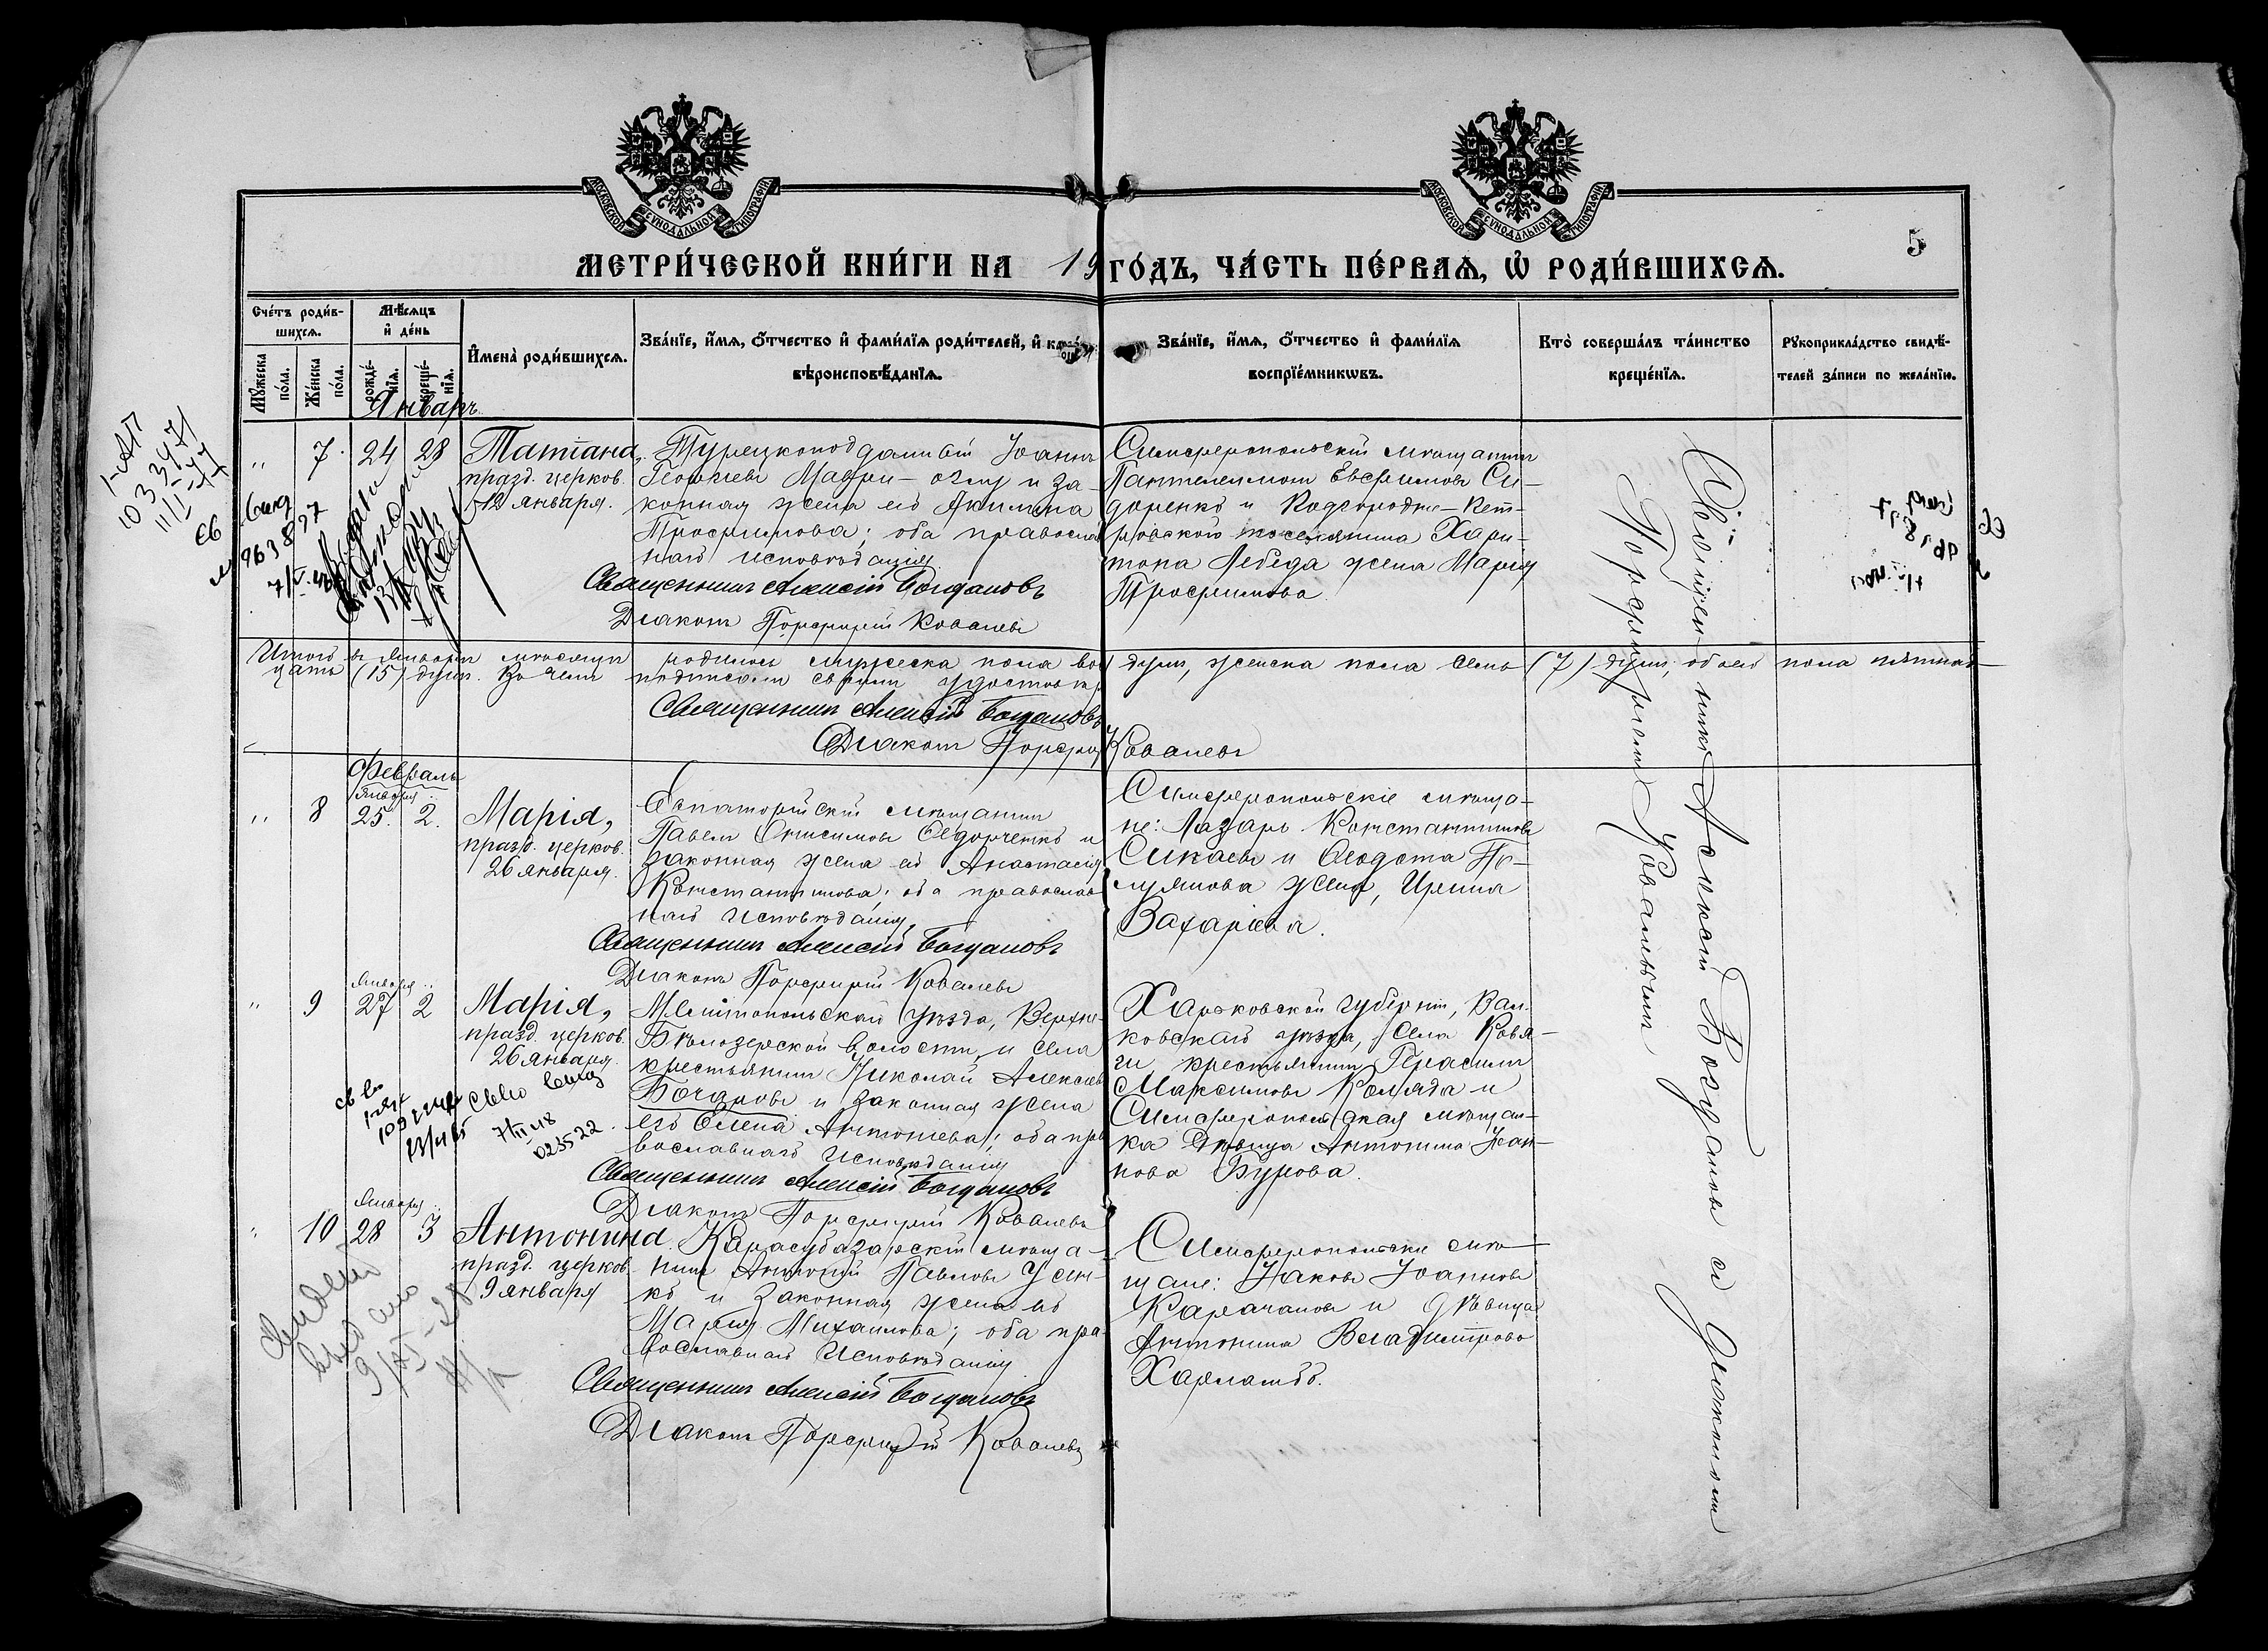 МОСКОВСКОЙ СѴНОДАЛЬНОЙ ТИПОГРАФІИ
МОСКОВСКОЙ СѴНОДАЛЬНОЙ ТИПОГРАФІИ
МЕТРИ́ЧЕСКОЙ КНИ́ГИ НА 19 ГО́ДЪ, ЧА́СТЬ ПЕ́РВАѦ, Ѡ҆ РОДИ́ВШИХСѦ.
5
Сче́тъ роди́в-
шихсѧ.
Мꙋ́жеска по́ла.
Же́нска по́ла.
Мѣ́сѧцъ
и҆ де́нь
рожде́-
нїѧ.
креще́-
нїѧ.
И҆мена̀ роди́вшихсѧ.
Зва́нїе, и҆́мѧ, ѻ҆́тчество и҆ фами́лїѧ роди́телей, и҆
вѣроисповѣ́данїѧ.
Зва́нїе, и҆́мѧ, ѻ҆́тчество и҆ фами́лїѧ
воспрїе́мникѡвъ.
Кто̀ соверша́лъ та́инство
креще́нїѧ.
Рꙋкоприкла́дство свидѣ́-
телей за́писи по жела́нїю.
Январь
" 7. 24 28 Татіана,
празд. церков.
12 января.
Турецкоподданный Іоаннъ
Георгіевъ Маври-оглу и за-
конная жена его Акилина
Трофимова; оба православ
наго исповѣданія
Священникъ Алексій Богдановъ
Діаконъ Порфирій Ковалевъ
Симферопольскій мѣщанинъ
Пантелеимонъ Евфимовъ Си-
доренко и
поселянина Хари-
тона Лебедя жена Марія
Трофимова.
Итого въ Январѣ мѣсяцѣ родилось мужеска пола во душъ, женска пола семь (7) душъ, обоего пола пятнад-
цать (15) душъ. Въ чемъ подписомъ своимъ удостовѣр
Священникъ Алексій Богдановъ
Діаконъ Порфирій Ковалевъ
Февраль
Января
" 8 25. 2. Марія,
празд. церков.
26 января.
Евпаторійскій мѣщанинъ
Павелъ Онисимовъ Ѳедорченко и
законная жена его Анастасія
Константинова; оба православ
наго исповѣданія,
Священникъ Алексій Богдановъ
Діаконъ Порфирій Ковалевъ
Симферопольскіе мѣща-
не: Лазарь Константиновъ
Сикаевъ и Ѳеодота
жена, Ирина
Захаріева.
Января
" 9 27 2 Марія,
празд. церков.
26 января.
Мелитопольскаго уѣзда, Верхне-
Бѣлозерской волости и села
крестьянинъ Николай Алексѣев
Бочаровъ и законная жена
его Елена Антоніева; оба пра
вославнаго исповѣданія
Священникъ Алексій Богдановъ
Діаконъ Порфирій Ковалевъ
Харьковской губерніи, Вал-
ковскаго уѣзда, села Ковя-
ги крестьянинъ Герасимъ
Максимовъ Коляда и
Симферопольская мѣщан-
ка дѣвица Антонина Іоан-
нова Бурова.
Января
" 10 28 3 Антонина
празд. церков.
9 января
Карасубазарскій мѣща-
нинъ Антоній Павловъ Усен-
ко и законная жена его
Марія Михаилова; оба пра
вославнаго исповѣданія
Священникъ Алексій Богдановъ
Діаконъ Порфирій Ковалевъ
Симферопольскіе мѣ-
щане: Іаковъ Іоанновъ
Карачановъ и дѣвица
Антонина Владимірова
Священникъ Алексій Богдановъ съ діакономъ
Порфиріемъ Ковалевымъ
023522